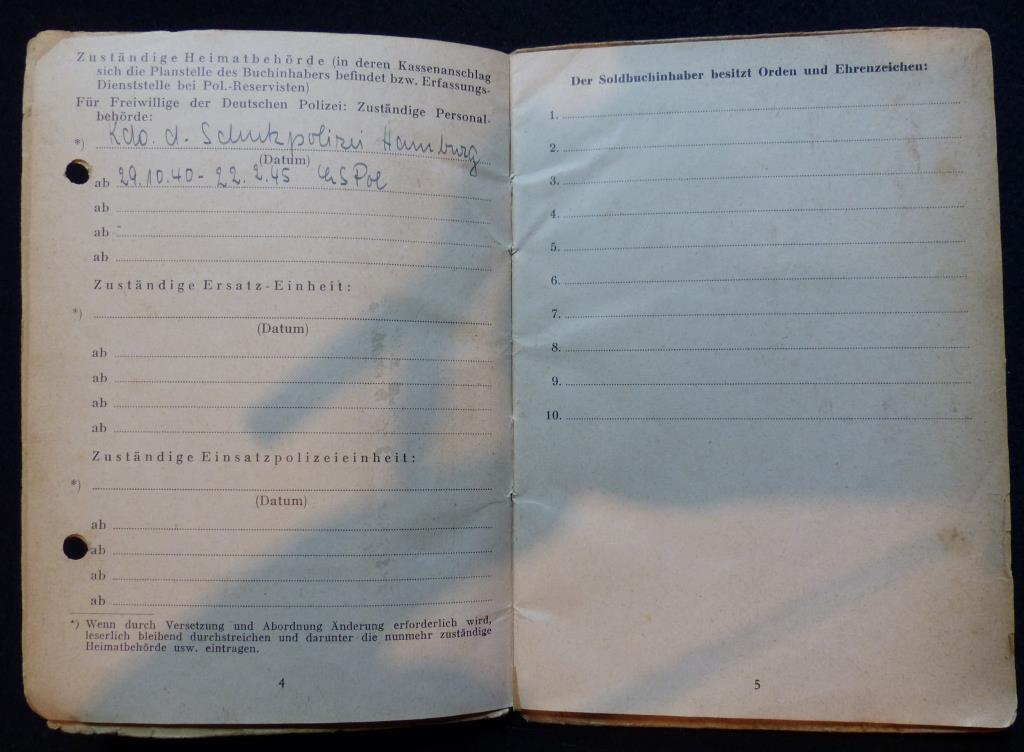 Zuständige Heimatbehörde (in deren Kassenanschlag
sich die Planstelle des Buchinhabers befindet bzw. Erfassungs-
Dienststelle bei Pol.-Reservisten)
Für Freiwillige der Deutschen Polizei: Zuständige Personal-
behörde:
*) Kdo. d. Schutzpolizei Hamburg
(Datum)
ab 29.10.40 - 22.2.45
ab
ab
ab
Zuständige Ersatz-Einheit:
*)
(Datum)
ab
ab
ab
ab
Zuständige Einsatzpolizeieinheit:
*)
(Datum)
ab
ab
ab
ab
*) Wenn durch Versetzung und Abordnung Änderung erforderlich wird,
leserlich bleibend durchstreichen und darunter die nunmehr zuständige
Heimatbehörde usw. eintragen.
4
Der Soldbuchinhaber besitzt Orden und Ehrenzeichen:
1.
2.
3.
4.
5.
6.
7.
8.
9.
10.
5